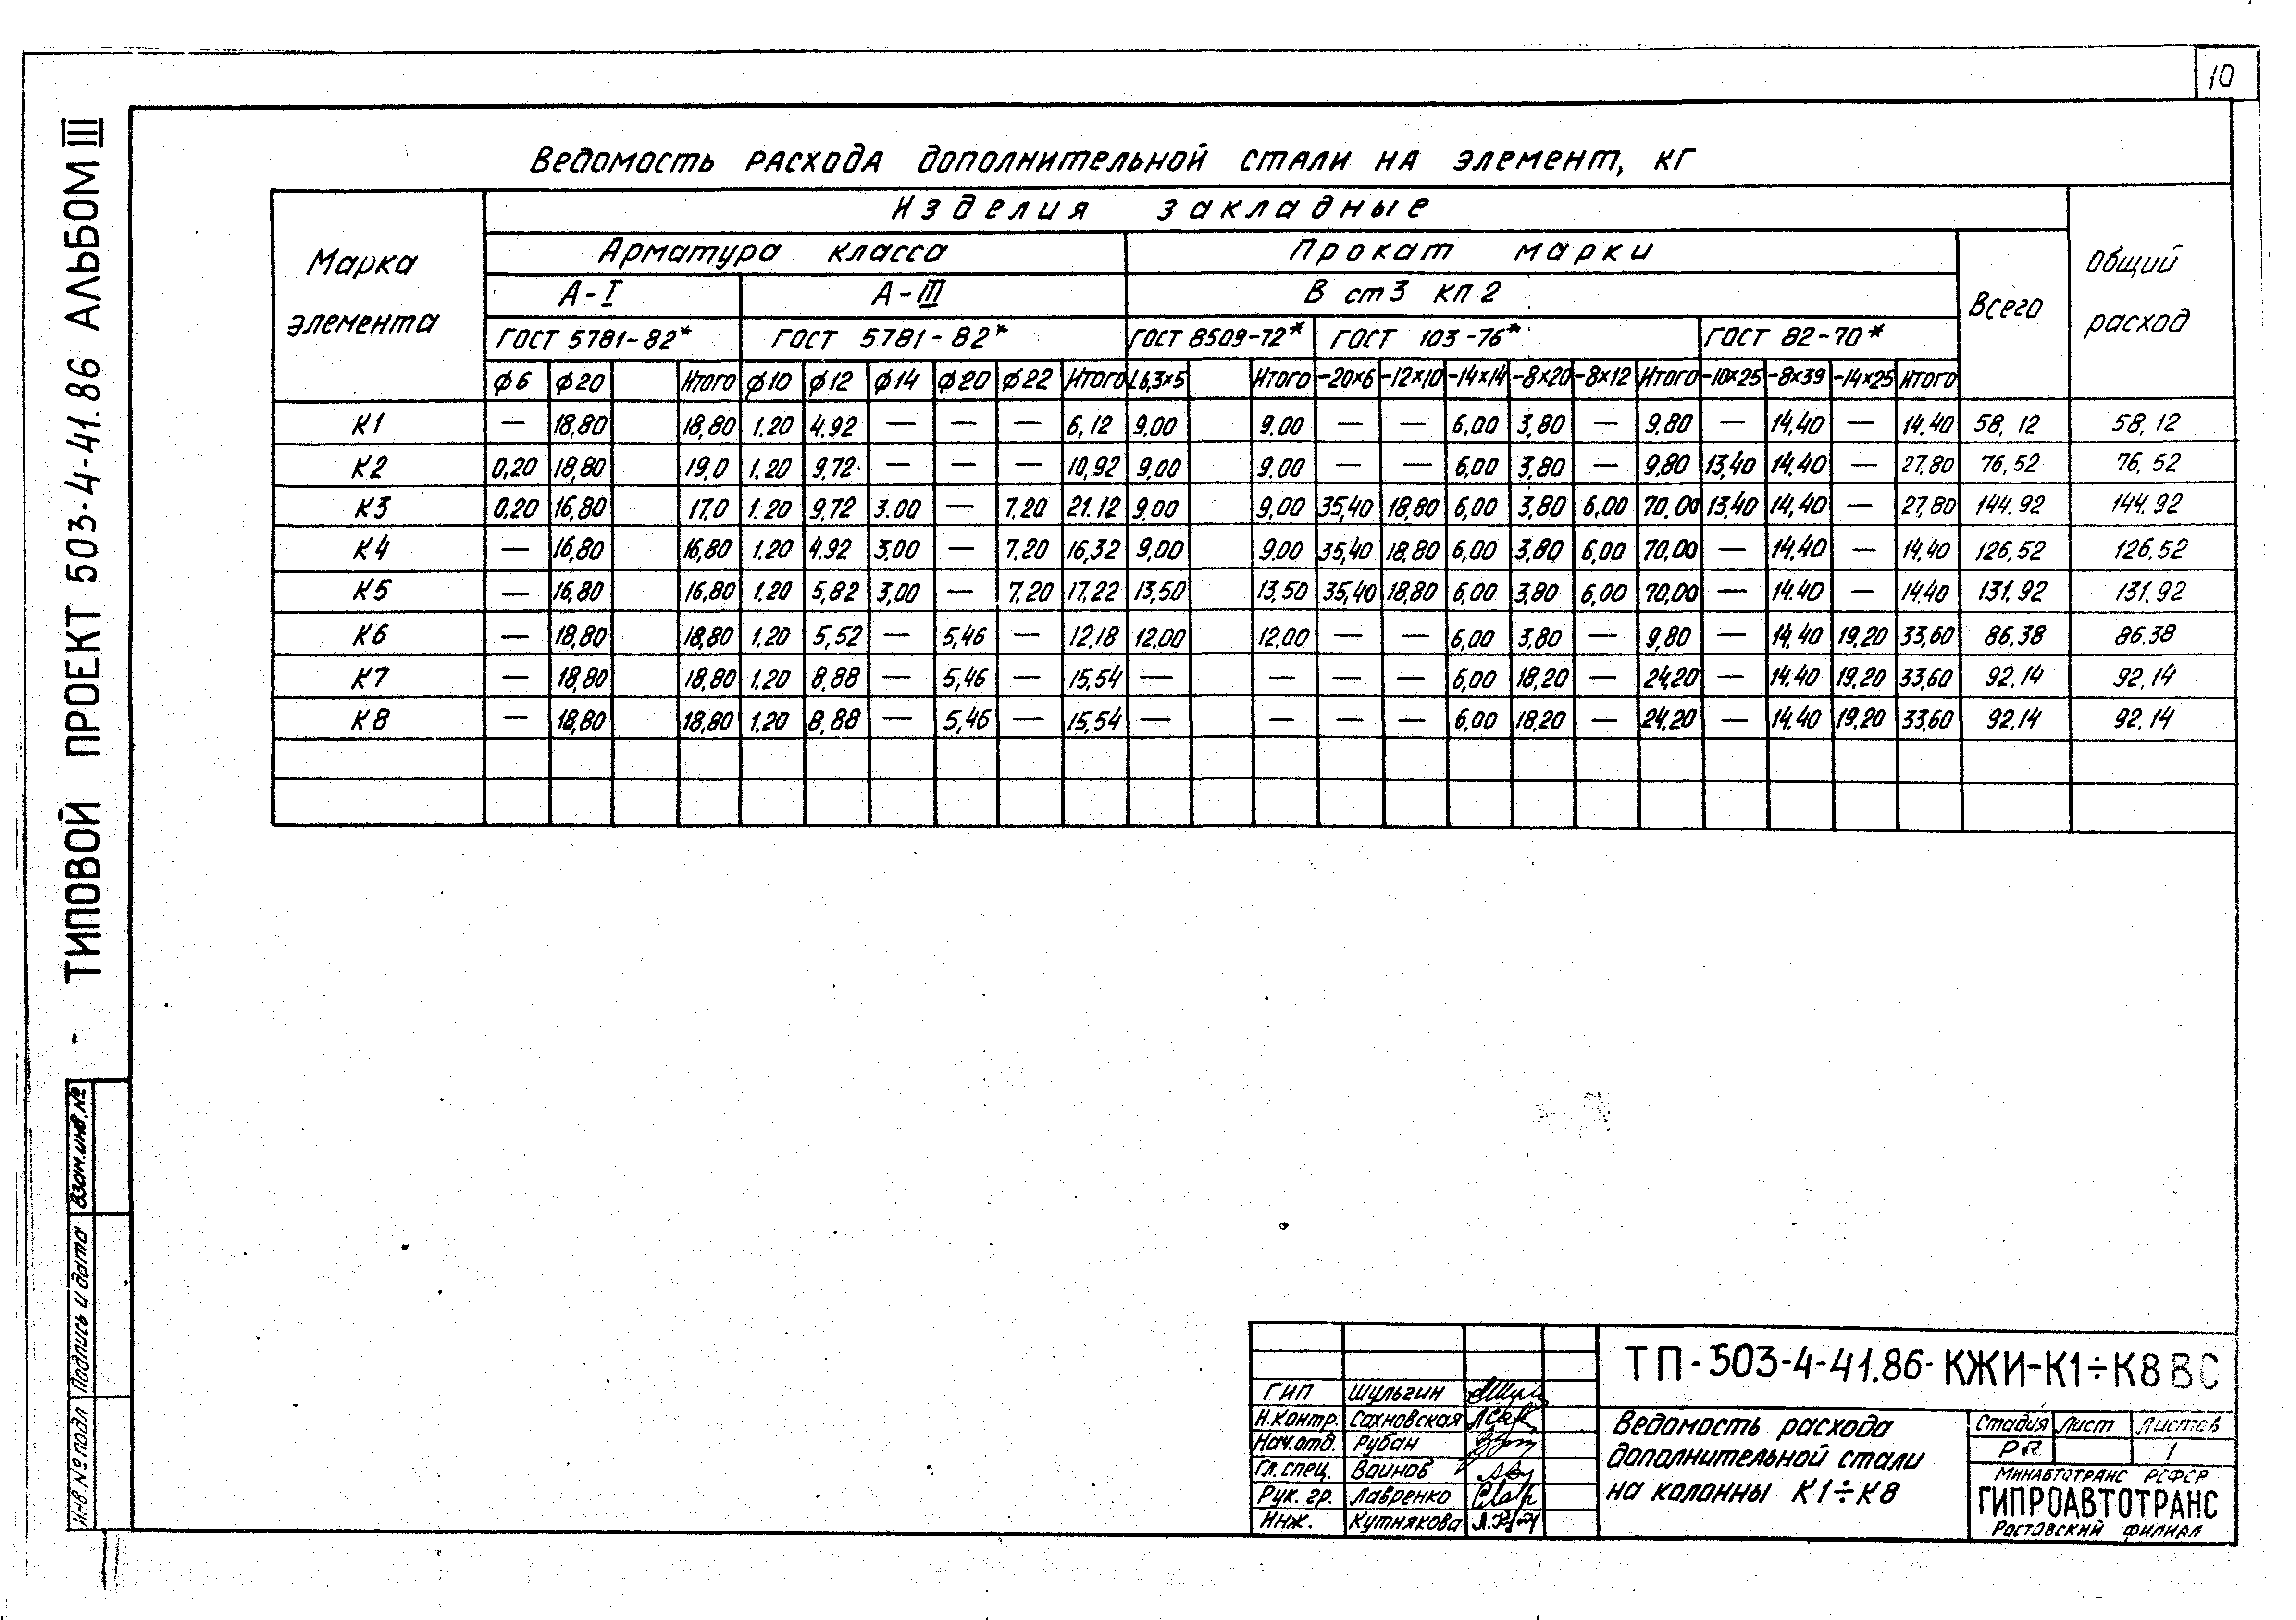 10
ТИПОВОЙ ПРОЕКТ 503-4-41.86 АЛЬБОМ III
Ведомость расхода дополнительной стали на элемент, кг
Марка элемента
Изделия закладные
Общий расход
Арматура класса
Прокат марки
Всего
А-I
А-III
В ст3 кп 2
ГОСТ 5781-82*
ГОСТ 5781-82*
ГОСТ 8509-72*
ГОСТ 103-76*
ГОСТ 82-70*
ϕ6 ϕ20 Итого ϕ10 ϕ12 ϕ14 ϕ20 ϕ22 Итого L6,3×5 Итого -20×6 -12×10 -14×14 -8×20 -8×12 Итого -10×25 -8×39 -14×25 Итого
К1 — 18,80 18,80 1.20 4.92 — — — 6,12 9,00 9.00 — — 6,00 3,80 — 9,80 — 14,40 — 14,40 58,12 58,12
К2 0,20 18,80 19,0 1.20 9,72 — — — 10,92 9,00 9.00 — — 6,00 3,80 — 9,80 13,40 14.40 — 27.80 76,52 76,52
К3 0,20 16,80 17,0 1.20 9,72 3.00 — 7.20 21.12 9,00 9,00 35,40 18,80 6,00 3,80 6,00 70,00 13,40 14,40 — 27,80 144.92 144.92
К4 — 16,80 16,80 1,20 4.92 3,00 — 7.20 16,32 9,00 9.00 35,40 18,80 6,00 3,80 6,00 70,00 — 14.40 — 14,40 126.52 126.52
К5 — 16,80 16,80 1,20 5,82 3,00 — 7.20 17.22 13,50 13,50 35,40 18,80 6,00 3,80 6,00 70,00 — 14.40 — 14.40 131.92 131.92
К6 — 18,80 18,80 1,20 5,52 — 5,46 — 12.18 12.00 12.00 — — 6,00 3,80 — 9,80 — 14,40 19.20 33,60 86.38 86.38
К7 — 18,80 18,80 1,20 8,88 — 5,46 — 15,54 — — — — 6,00 18,20 — 24,20 — 14.40 19,20 33,60 92.14 92.14
К8 — 18,80 18,80 1,20 8,88 — 5,46 — 15,54 — — — — 6,00 18,20 — 24,20 — 14,40 19.20 33,60 92.14 92.14
Взам.инв.№
Подпись и дата
Инв.№ подл
ТП-503-4-41.86-КЖИ-К1÷К8 ВС
ГИП Шульгин
Н.контр. Сахновская
Нач.отд. Рубан
Гл.спец. Воинов
Рук. гр. Лавренко
Инж. Кутнякова
Ведомость расхода
дополнительной стали
на колонны К1÷К8
Стадия Лист Листов
1
МИНАВТОТРАНС РСФСР
ГИПРОАВТОТРАНС
Ростовский филиал